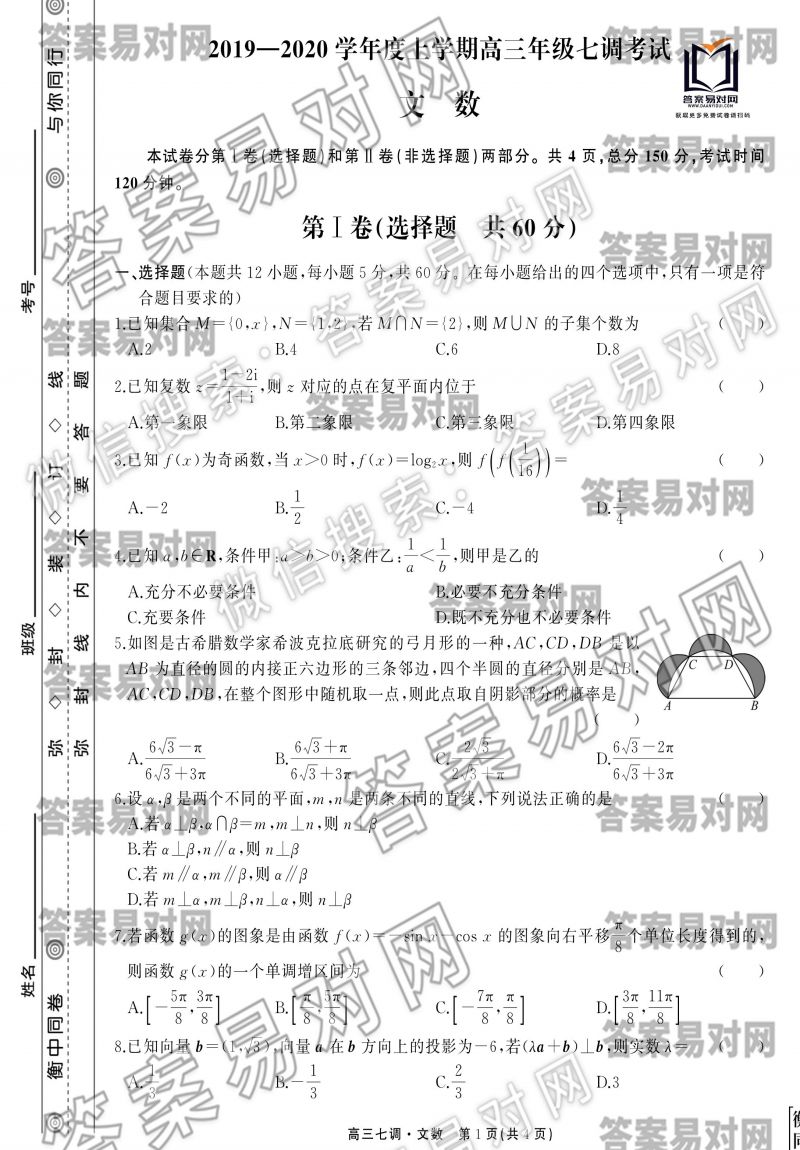 2019—2020 学年度上学期高三年级七调考试
答案易对网
WWW.DAANYIDUI.COM
获取更多免费试卷请扫码
文 数
本试卷分第Ⅰ卷(选择题)和第Ⅱ卷(非选择题)两部分。共 4 页,总分 150 分,考试时间
120 分钟。
第Ⅰ卷(选择题 共 60 分)
一、选择题(本题共 12 小题,每小题 5 分,共 60 分。在每小题给出的四个选项中,只有一项是符
合题目要求的)
1.已知集合 M={0,x},N={1,2},若 M∩N={2},则 M∪N 的子集个数为 ( )
A.2 B.4 C.6 D.8
2.已知复数 z=(1-2i)/(1+i),则 z 对应的点在复平面内位于 ( )
A.第一象限 B.第二象限 C.第三象限 D.第四象限
3.已知 f(x)为奇函数,当 x>0 时,f(x)=log₂x,则 f(f(1/16))= ( )
A.-2 B.1/2 C.-4 D.1/4
4.已知 a,b∈R,条件甲:a>b>0;条件乙:1/a<1/b,则甲是乙的 ( )
A.充分不必要条件 B.必要不充分条件
C.充要条件 D.既不充分也不必要条件
5.如图是古希腊数学家希波克拉底研究的弓月形的一种,AC,CD,DB 是以
AB 为直径的圆的内接正六边形的三条邻边,四个半圆的直径分别是 AB,
AC,CD,DB,在整个图形中随机取一点,则此点取自阴影部分的概率是
( )
C D
A B
A.(6√3-π)/(6√3+3π) B.(6√3+π)/(6√3+3π) C.2√3/(2√3+π) D.(6√3-2π)/(6√3+3π)
6.设 α,β 是两个不同的平面,m,n 是两条不同的直线,下列说法正确的是 ( )
A.若 α⊥β,α∩β=m,m⊥n,则 n⊥β
B.若 α⊥β,n∥α,则 n⊥β
C.若 m∥α,m∥β,则 α∥β
D.若 m⊥α,m⊥β,n⊥α,则 n⊥β
7.若函数 g(x)的图象是由函数 f(x)=-sin x-cos x 的图象向右平移 π/8 个单位长度得到的,
则函数 g(x)的一个单调增区间为 ( )
A.[-5π/8,3π/8] B.[π/8,5π/8] C.[-7π/8,π/8] D.[3π/8,11π/8]
8.已知向量 b=(1,√3),向量 a 在 b 方向上的投影为-6,若(λa+b)⊥b,则实数 λ= ( )
A.1/3 B.-1/3 C.2/3 D.3
高三七调·文数 第 1 页(共 4 页)
与你同行
考号
班级
姓名
弥 ◇ 封 ◇ 装 ◇ 订 ◇ 线
弥 封 线 内 不 要 答 题
衡中同卷
微信搜索:答案易对网
答案易对网